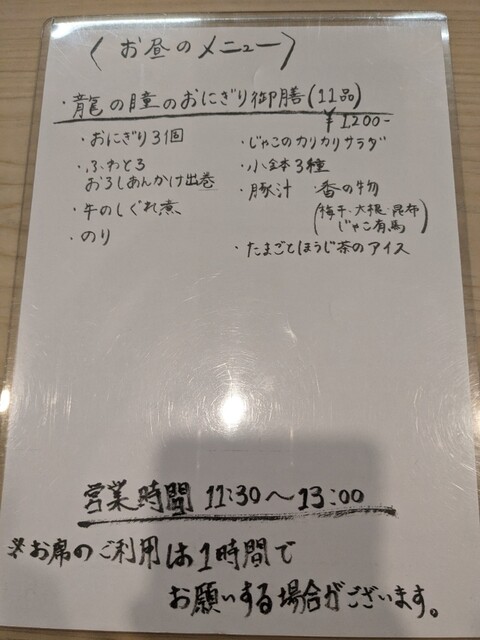 〈お昼のメニュー〉
・龍の瞳のおにぎり御膳(11品)
¥1200-
・おにぎり3個
・ふわとろ
おろしあんかけ出巻
・牛のしぐれ煮
・のり
・じゃこのカリカリサラダ
・小鉢3種
・豚汁 ・香の物
(梅干・大根・昆布
じゃこ有馬)
・たまごとほうじ茶のアイス
営業時間 11:30〜13:00
※お席のご利用は1時間で
お願いする場合がございます。